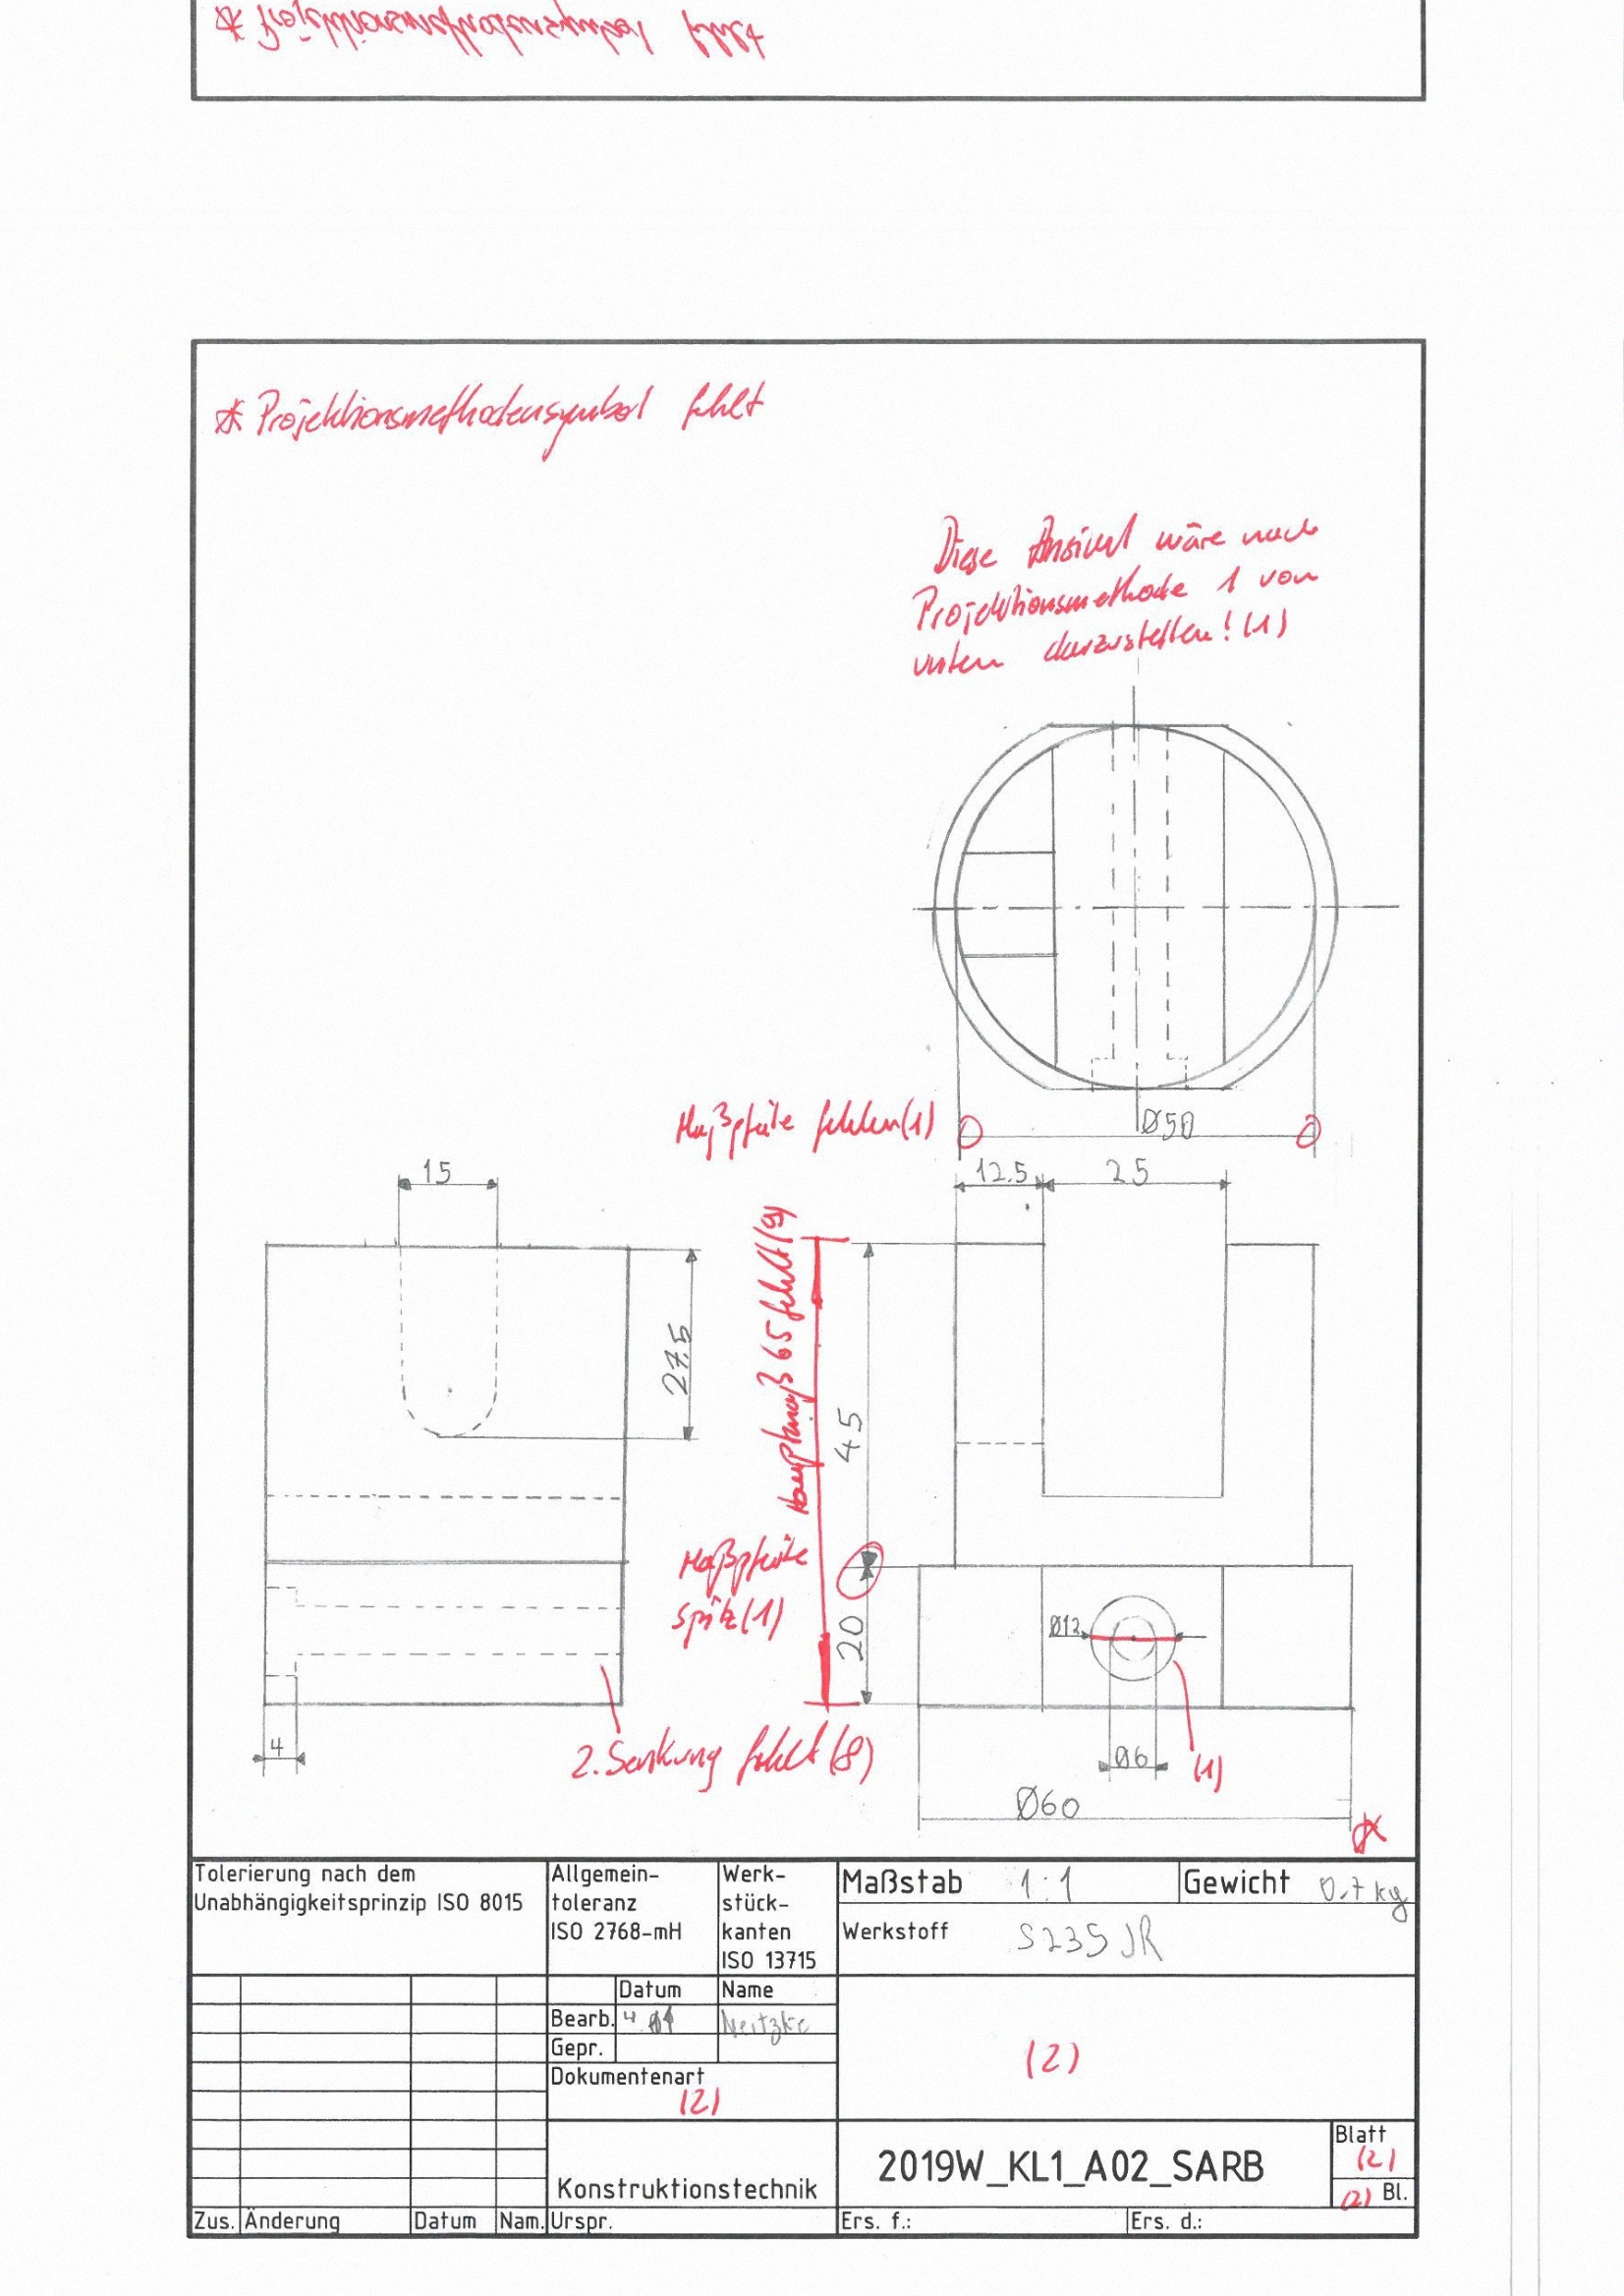 * Projektionsmethodensymbol fehlt
* Projektionsmethodensymbol fehlt
Diese Ansicht wäre nach
Projektionsmethode 1 von
unten darzustellen! (1)
Maßpfeile fehlen (1)
Ø50
15
12.5
25
27.5
Hauptmaß 65 fehlt (9)
45
Maßpfeile
spitz (1)
20
Ø12
4
2. Senkung fehlt (8)
Ø6
(1)
Ø60
*
Tolerierung nach dem
Unabhängigkeitsprinzip ISO 8015
Allgemein-
toleranz
ISO 2768-mH
Werk-
stück-
kanten
ISO 13715
Maßstab 1:1
Gewicht 0.7 kg
Werkstoff S235JR
Datum Name
Bearb. Neitzke
Gepr.
Dokumentenart
(2)
(2)
Konstruktionstechnik
2019W_KL1_A02_SARB
Blatt
(2)
(2) Bl.
Zus. Änderung Datum Nam. Urspr. Ers. f.: Ers. d.: